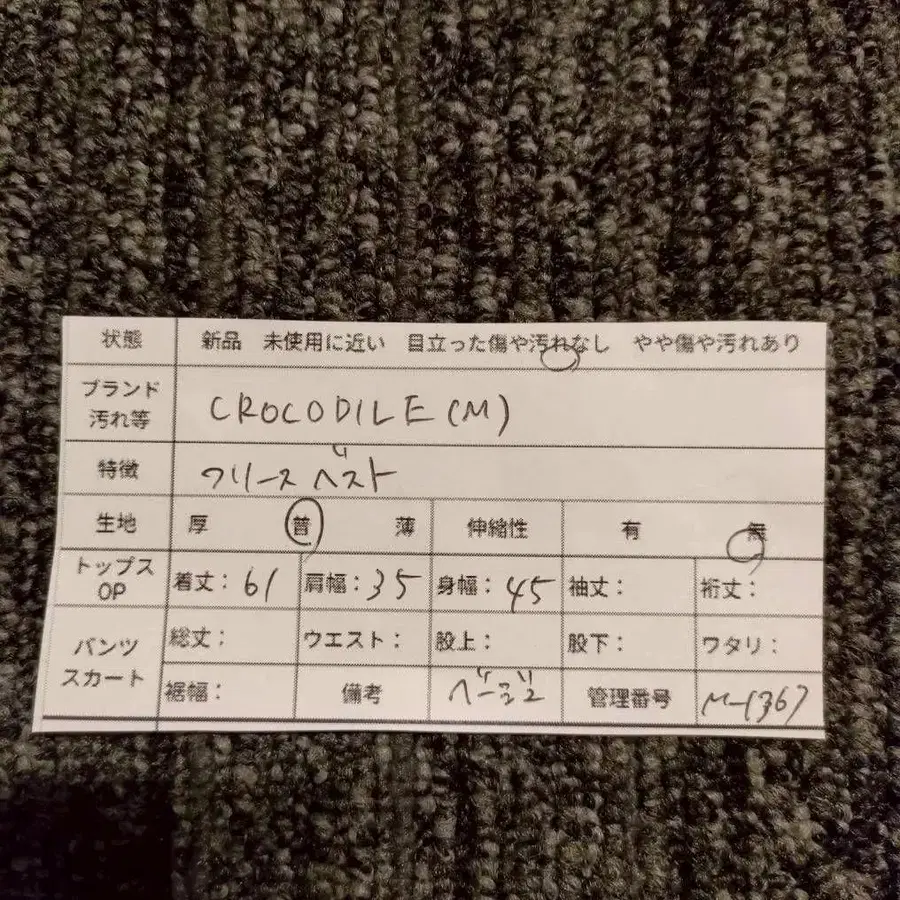 状態 新品 未使用に近い 目立った傷や汚れなし やや傷や汚れあり
ブランド
汚れ等
CROCODILE (M)
特徴 フリースベスト
生地 厚 普 薄 伸縮性 有 無
トップス
OP
着丈：61 肩幅：35 身幅：45 袖丈： 裄丈：
パンツ
スカート
総丈： ウエスト： 股上： 股下： ワタリ：
裾幅： 備考 ベージュ 管理番号 M-1367